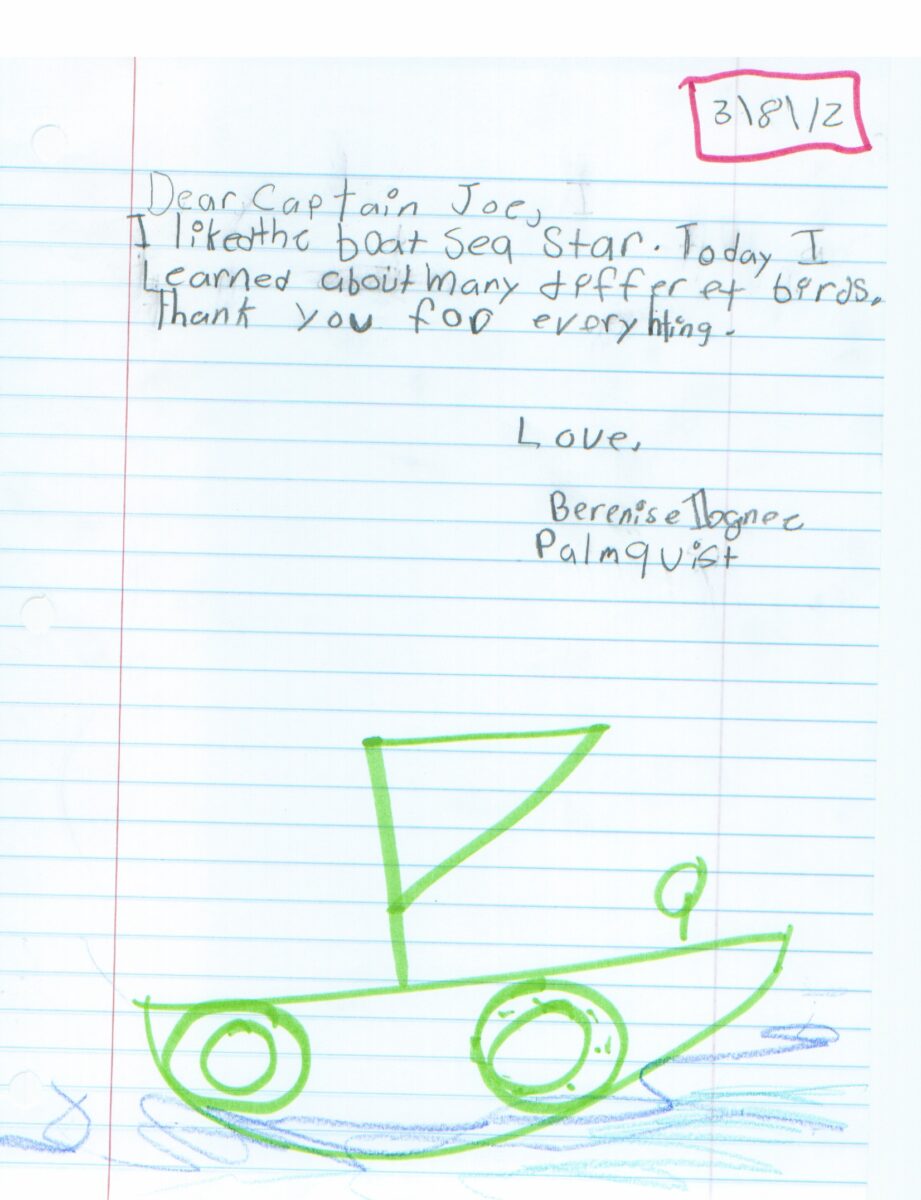 3\8\12
Dear Captain Joe,
I liked the boat Sea Star. Today I
Learned about many differet birds.
Thank you for everyhting.
Love,
Berenise
Palmquist